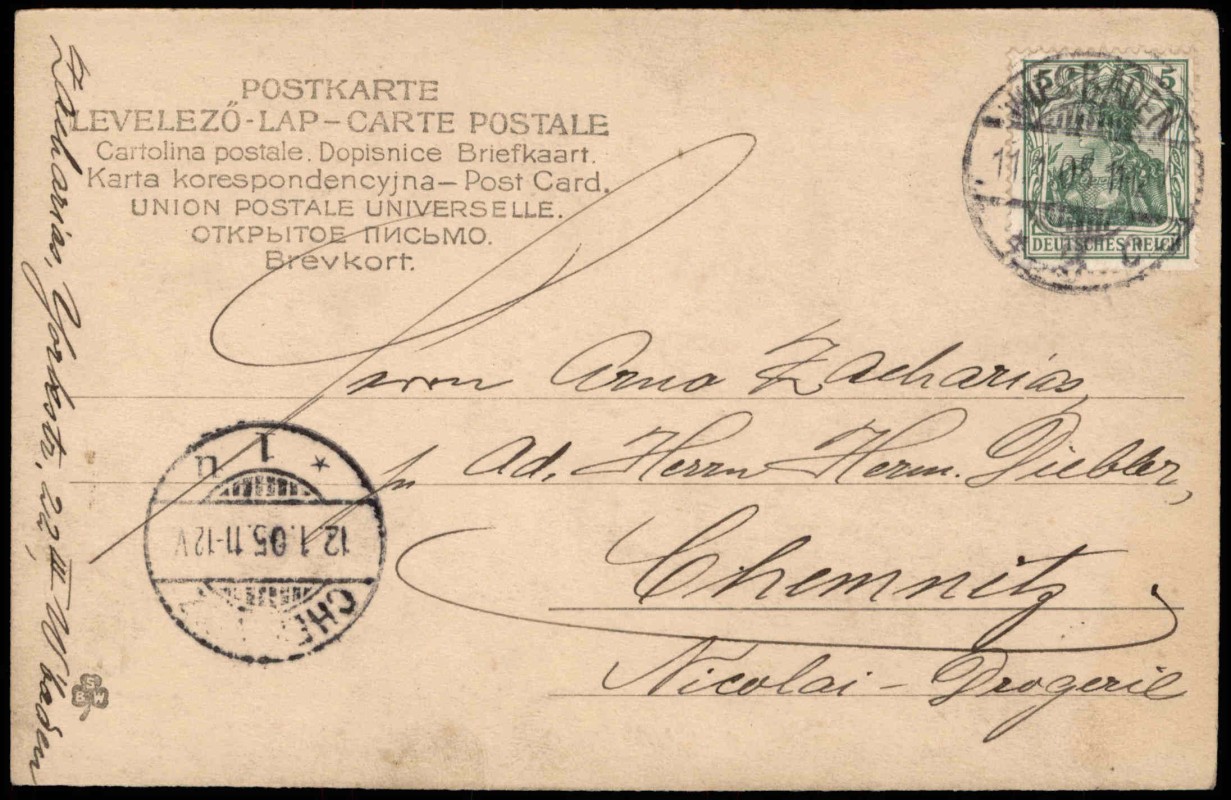 POSTKARTE
LEVELEZŐ-LAP-CARTE POSTALE
Cartolina postale. Dopisnice Briefkaart.
Karta korespondencyjna-Post Card.
UNION POSTALE UNIVERSELLE.
ОТКРЫТОЕ ПИСЬМО.
Brevkort.
5 5
DEUTSCHES REICH
WIESBADEN
11.1.05.11-12
* 1 c
Herrn Arno Zacharias,
Ad. Herrn Herm. Diebler,
Chemnitz
Nicolai-Drogerie
1
* u
12.1.05.11-12V.
CHE
Zacharias, Yorkstr, 22 III W'baden
SBW